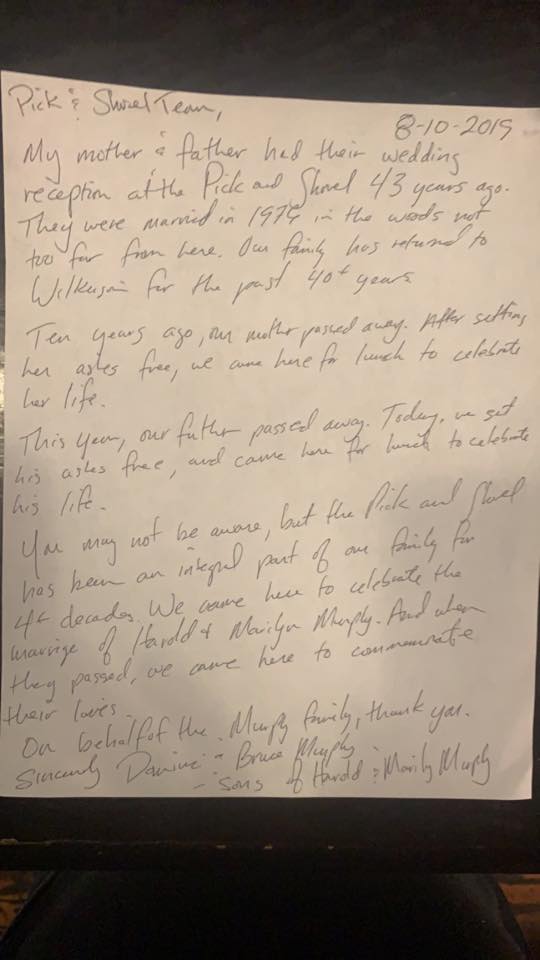 Pick & Shovel Team,
8-10-2019
My mother & father had their wedding
reception at the Pick and Shovel 43 years ago.
They were married in 1976 in the woods not
too far from here. Our family has returned to
Wilkeson for the past 40+ years.
Ten years ago, our mother passed away. After setting
her ashes free, we came here for lunch to celebrate
her life.
This year, our father passed away. Today, we set
his ashes free, and came here for lunch to celebrate
his life.
You may not be aware, but the Pick and Shovel
has been an integral part of our family for
4+ decades. We came here to celebrate the
marriage of Harold & Marilyn Murphy. And when
they passed, we came here to commemorate
their lives.
On behalf of the Murphy family, thank you.
Sincerely & Bruce Murphy
- Sons of Harold & Marily Murphy